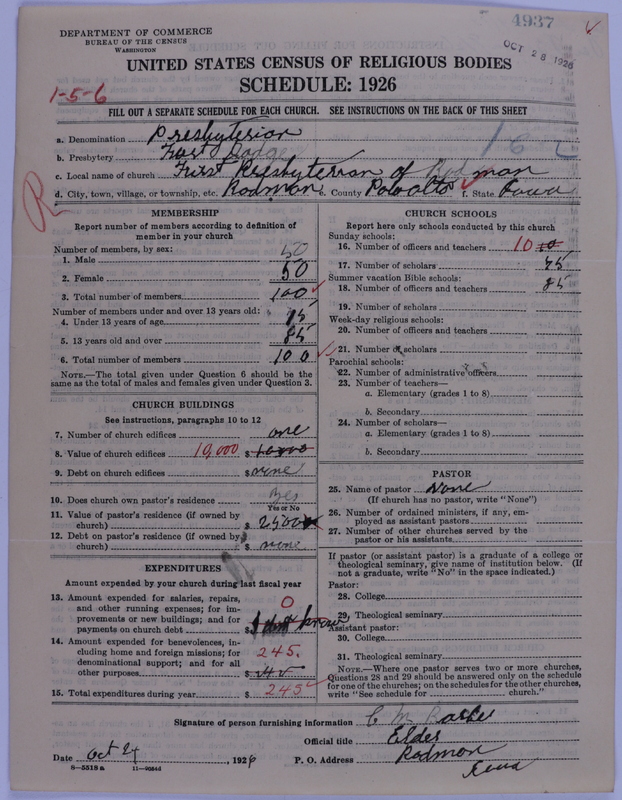 4937
DEPARTMENT OF COMMERCE
BUREAU OF THE CENSUS
WASHINGTON
OCT 28 1926
UNITED STATES CENSUS OF RELIGIOUS BODIES
SCHEDULE: 1926
1-5-6
FILL OUT A SEPARATE SCHEDULE FOR EACH CHURCH. SEE INSTRUCTIONS ON THE BACK OF THIS SHEET
a. Denomination Presbyterian
b. Presbytery Fort Dodge
c. Local name of church First Presbyterian of Rodman
d. City, town, village, or township, etc. Rodman e. County Palo Alto f. State Iowa
R
MEMBERSHIP
Report number of members according to definition of member in your church
Number of members, by sex:
1. Male 50
2. Female 50
3. Total number of members 100
Number of members under and over 13 years old:
4. Under 13 years of age 15
5. 13 years old and over 85
6. Total number of members 100
NOTE.—The total given under Question 6 should be the
same as the total of males and females given under Question 3.
CHURCH BUILDINGS
See instructions, paragraphs 10 to 12
7. Number of church edifices one
8. Value of church edifices 10,000 $ 10000
9. Debt on church edifices $ none
10. Does church own pastor's residence Yes
Yes or No
11. Value of pastor's residence (if owned by
church) $ 2500
12. Debt on pastor's residence (if owned by
church) $ none
EXPENDITURES
Amount expended by your church during last fiscal year
13. Amount expended for salaries, repairs, 0
and other running expenses; for im-
provements or new buildings; and for
payments on church debt $ know
14. Amount expended for benevolences, in-
cluding home and foreign missions; for 245.
denominational support; and for all
other purposes $
15. Total expenditures during year $ 245
CHURCH SCHOOLS
Report here only schools conducted by this church
Sunday schools:
16. Number of officers and teachers 10 10
17. Number of scholars
Summer vacation Bible schools:
18. Number of officers and teachers 85
19. Number of scholars
Week-day religious schools:
20. Number of officers and teachers
21. Number of scholars
Parochial schools:
22. Number of administrative officers
23. Number of teachers—
a. Elementary (grades 1 to 8)
b. Secondary
24. Number of scholars—
a. Elementary (grades 1 to 8)
b. Secondary
PASTOR
25. Name of pastor None
(If church has no pastor, write "None")
26. Number of ordained ministers, if any, em-
ployed as assistant pastors
27. Number of other churches served by the
pastor or his assistants
If pastor (or assistant pastor) is a graduate of a college or
theological seminary, give name of institution below. (If
not a graduate, write "No" in the space indicated.)
Pastor:
28. College
29. Theological seminary
Assistant pastor:
30. College
31. Theological seminary
NOTE.—Where one pastor serves two or more churches,
Questions 28 and 29 should be answered only on the schedule
for one of the churches; on the schedules for the other churches,
write "See schedule for church."
Signature of person furnishing information E M
Official title Elder
Date Oct 24, 1926 P. O. Address Rodman
Iowa
8—5518 a 11—9054d